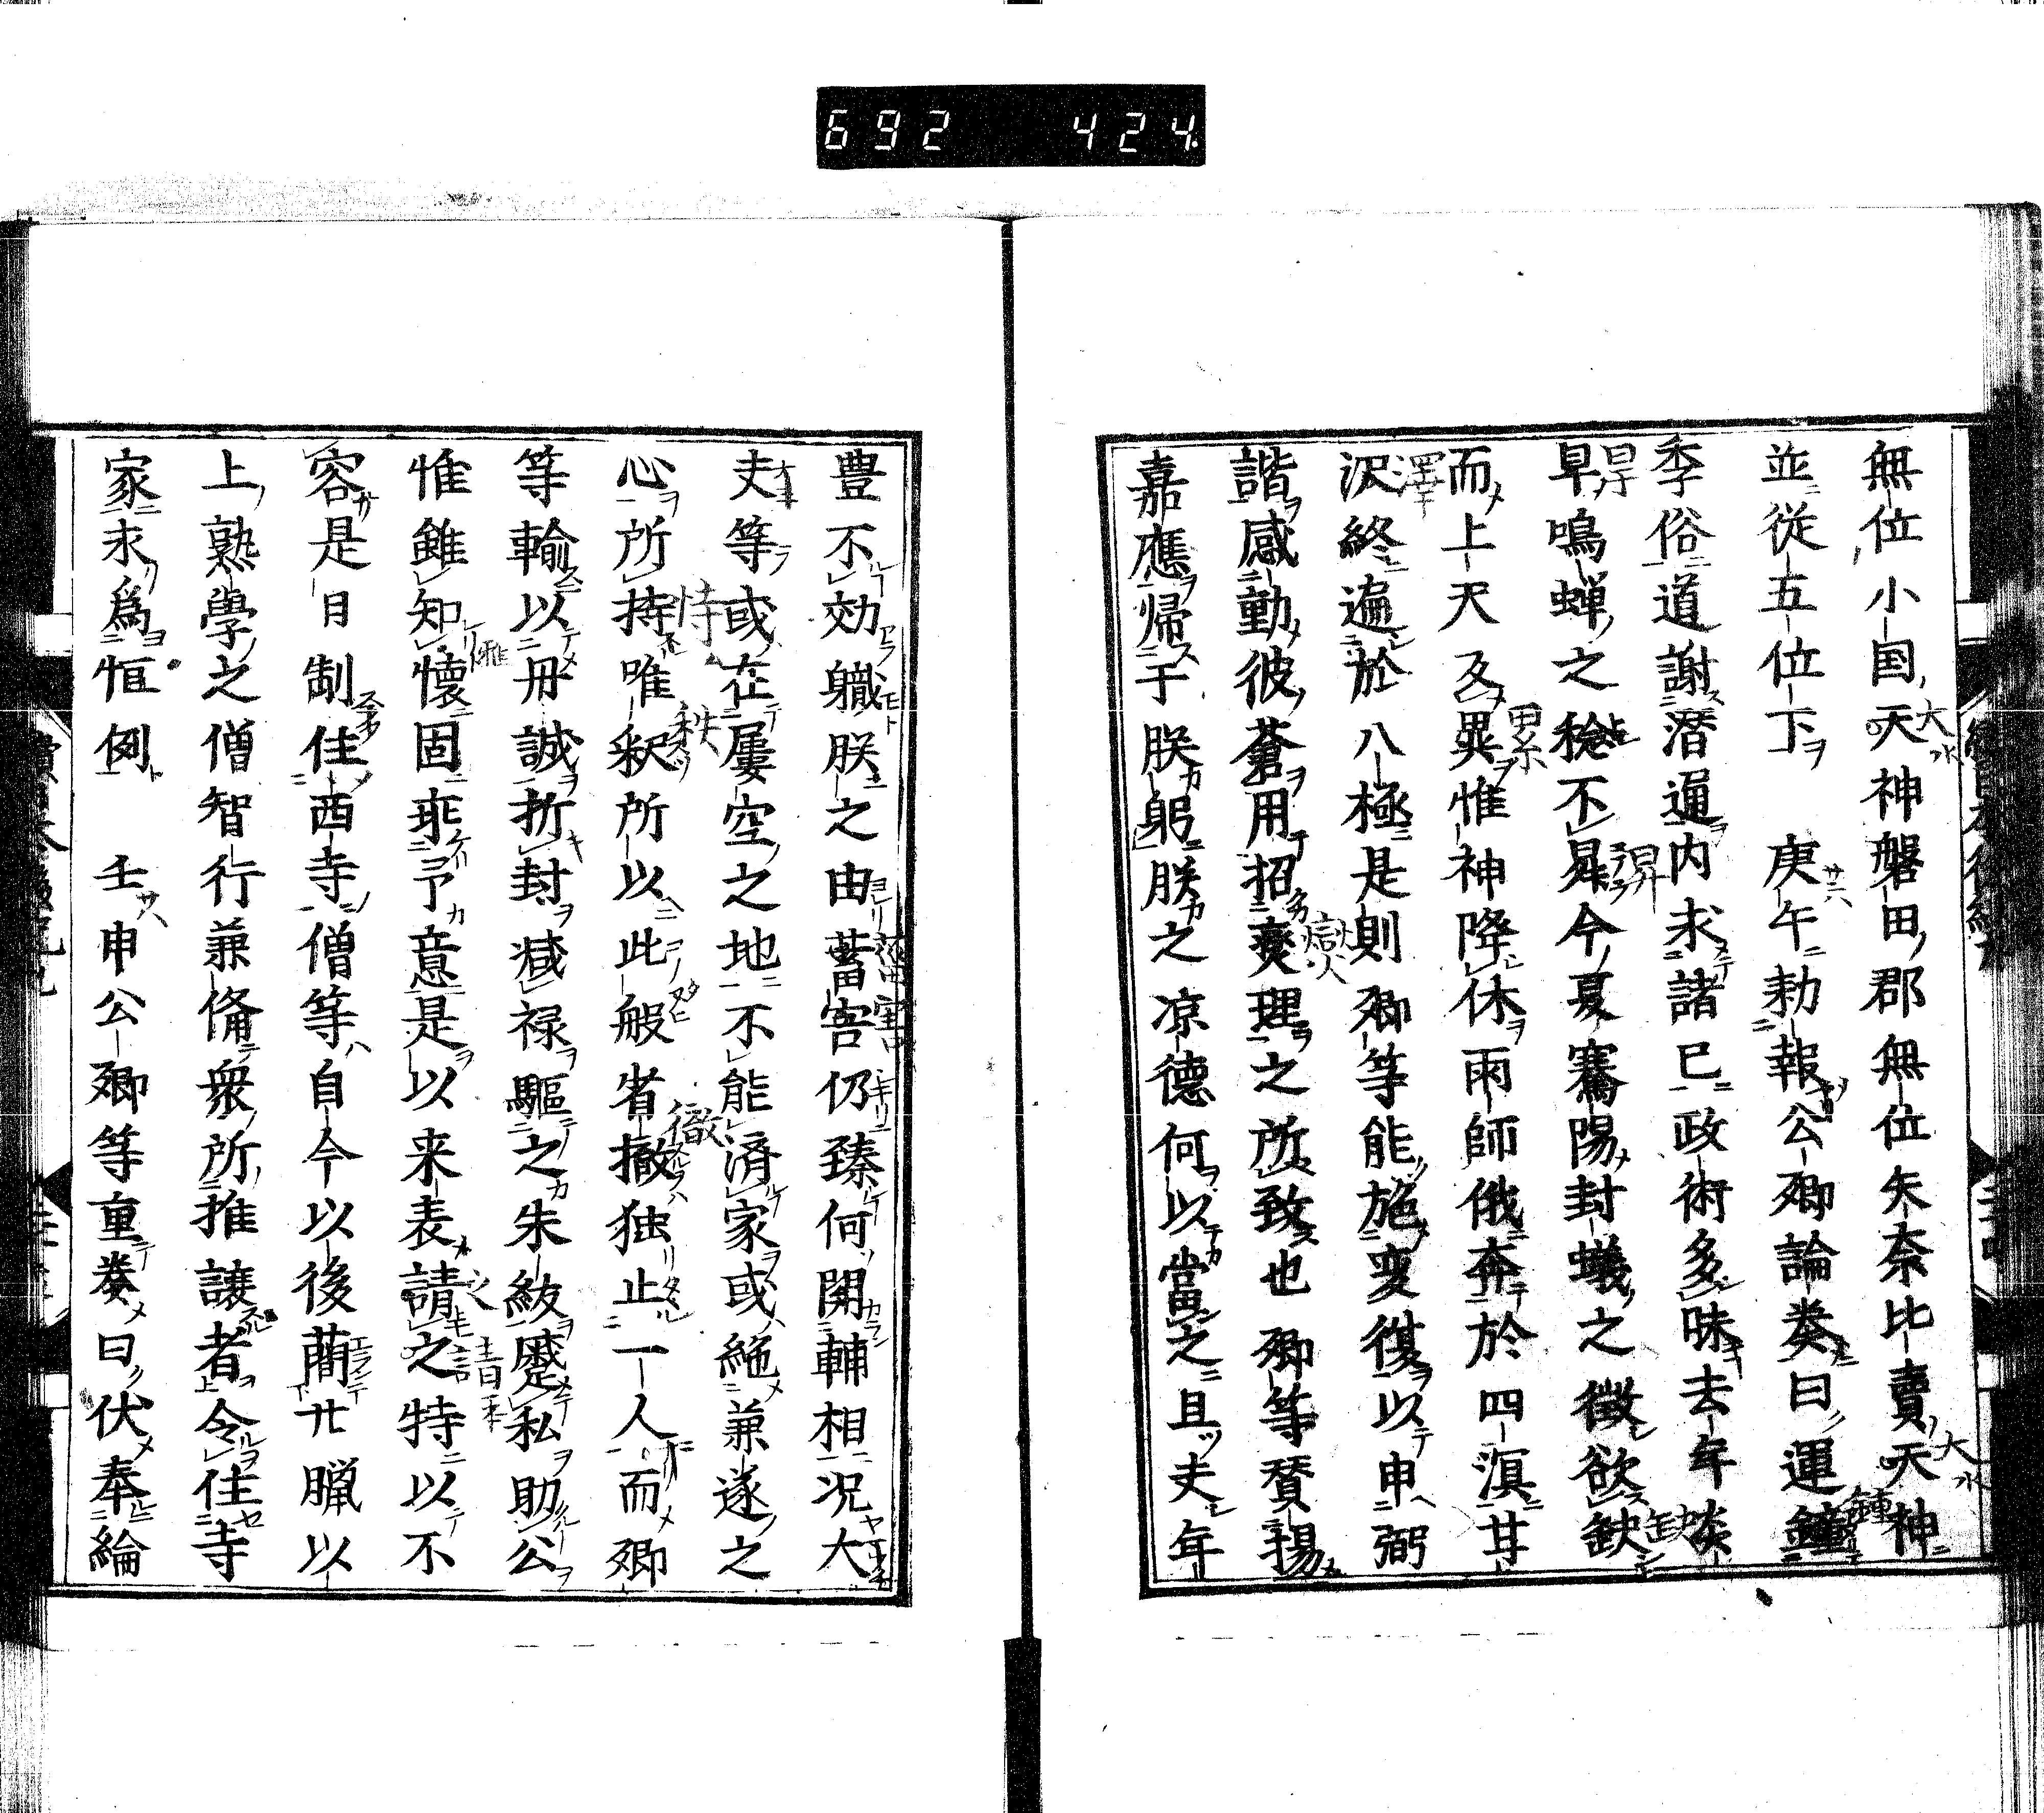 692 424
無位小国天神磐田郡無位矢奈比賣天神
並從五位下　庚午勅報公卿論奏曰運鐘
季俗道謝潜運内求諸已政術多昧去年炎
旱鳴蝉之稔不昇今夏騫陽封蟻之徴欲缺
而上天及異惟神降休雨師俄奔於四溟甘
沢終遍於八極是則卿等能施変復以申弼
諧感動彼蒼用招爕理之所致也卿等賛揚
嘉應帰于朕躬朕之凉德何以當之且丈年
豊不効職朕之由蓄害仍臻何関輔相况大
夫等或在屡空之地不能済家或絶兼遂之
心所持唯釈所以此般省撤独止一人而卿
等輸以丹誠折封减禄驅之朱紱蹙私助公
惟雖知懷固乖予意是以来表請之特以不
容是日制住西寺僧等自今以後蕳廿臈以
上熟學之僧智行兼俻衆所推譲者令住寺
家永爲恒例　壬申公卿等重奏曰伏奉綸